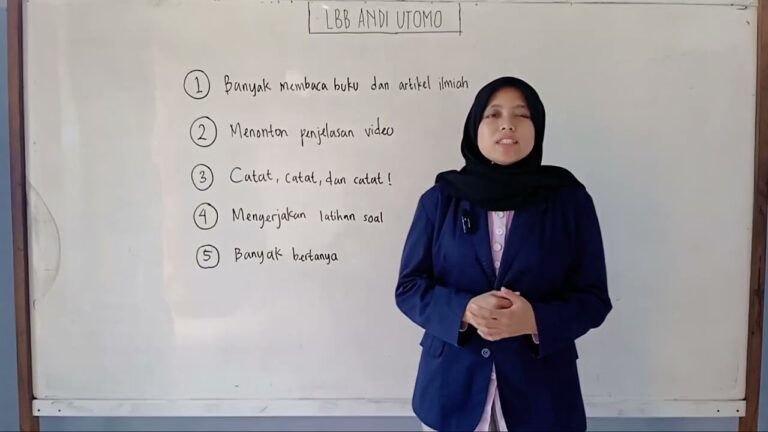 LBB ANDI UTOMO
1 Banyak membaca buku dan artikel ilmiah
2 Menonton penjelasan video
3 Catat, catat, dan catat!
4 Mengerjakan latihan soal
5 Banyak bertanya